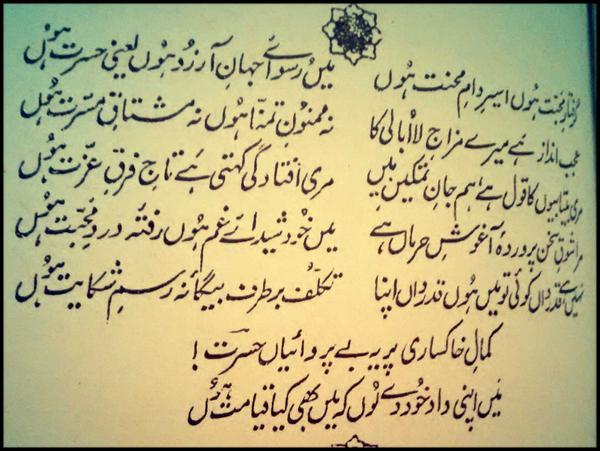 گرفتارِ محبت ہوں اسیرِ دامِ محنت ہوں
میں رسوائے جہانِ آرزو ہوں یعنی حسرت ہوں
عجب انداز ہے میرے مزاجِ لاابالی کا
نہ ممنونِ تمنّا ہوں نہ مشتاقِ مسرّت ہوں
مری بیتابیوں کا قول ہے، ہم جانِ تمکیں ہیں
مری افتادگی کہتی ہے تاجِ فرقِ عزّت ہوں
مرا شوقِ سخن پروردۂ آغوشِ حرماں ہے
میں خود شیدائے غم ہوں رفتۂ دردِ محبّت ہوں
نہیں ہے قدرداں کوئی تو میں ہوں قدرداں اپنا
تکلّف برطرف بیگانۂ رسمِ شکایت ہوں
کمالِ خاکساری پر یہ بے پروائیاں حسرت!
میں اپنی داد خود دے لوں کہ میں بھی کیا قیامت ہوں